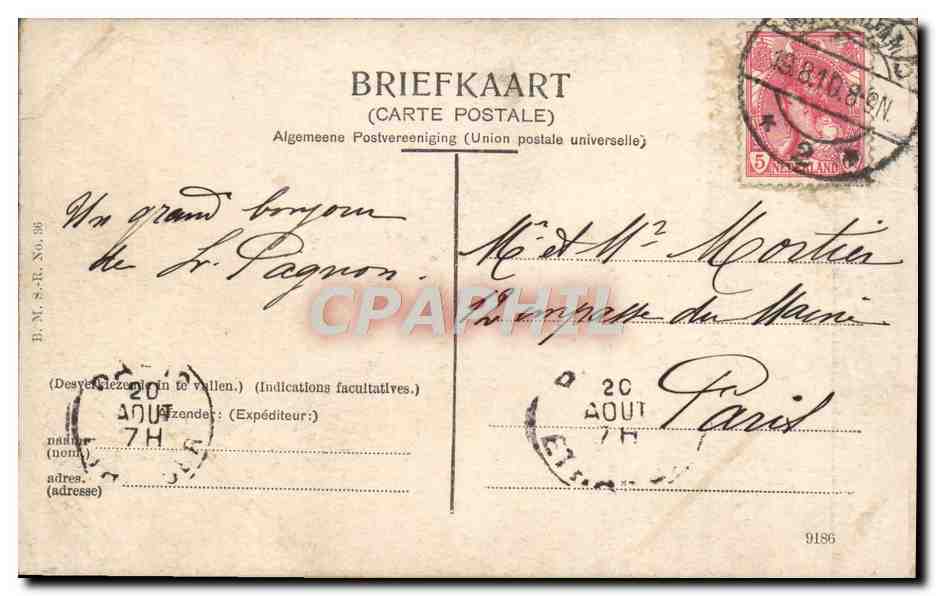 BRIEFKAART
(CARTE POSTALE)
Algemeene Postvereeniging (Union postale universelle)
19.8.10.8-9N.
2
5 NEDERLAND
Un grand bonjour
de Pagnon.
Mr et Mr Mortier
12 impasse du Maine
Paris
CPAPHIL
B. M. S.-R. No. 36
(Desverkiezende in te vullen.) (Indications facultatives.)
Afzender: (Expéditeur:)
naam
(nom.)
adres.
(adresse)
20
AOUT
7H
20
AOUT
7H
9186